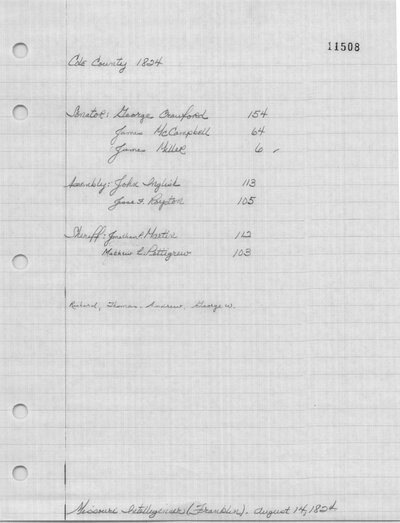 11508
Cole County 1824
Senator: George Crawford 154
James McCampbell 64
James Miller 6
Assembly: John Inglish 113
Jesse F. Royston 105
Sheriff: Jonathan P. Martin 112
Mathew L. Pettigrew 103
Richard, Thomas, Andrew, George W.
Missouri Intelligencer (Franklin). August 14, 1824